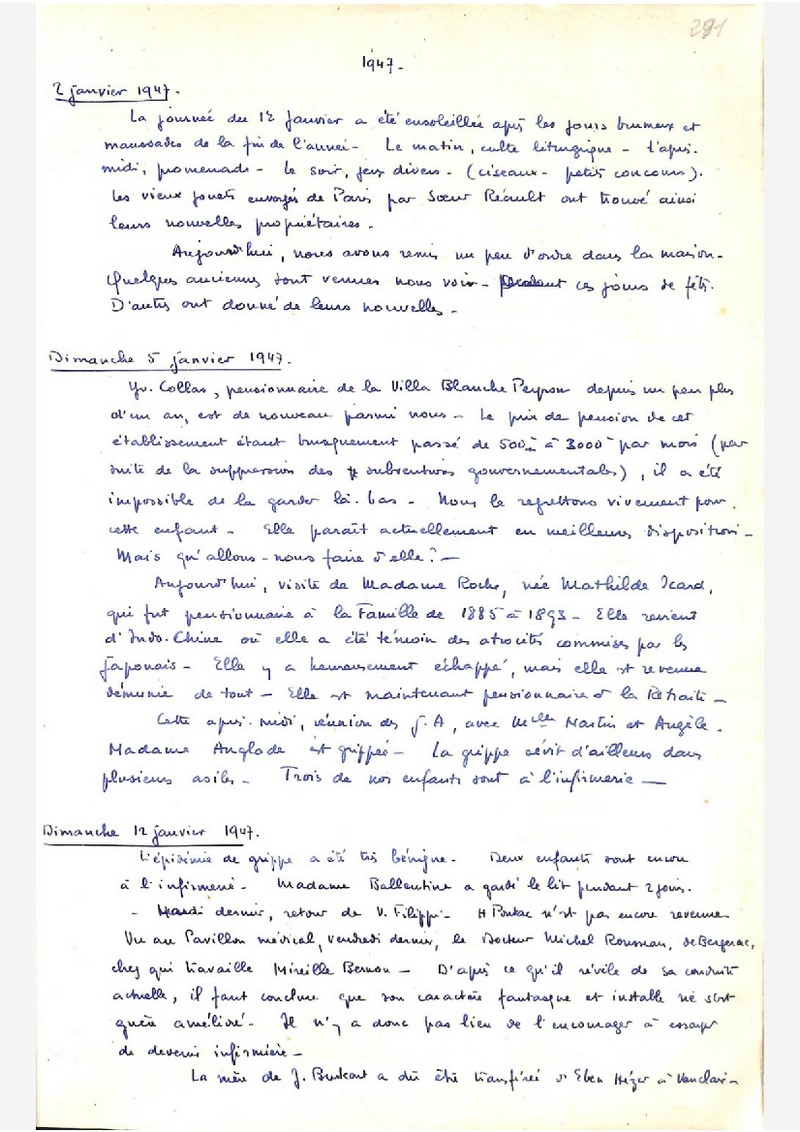 281
1947-
2 janvier 1947.
La journée du 1er Janvier a été ensoleillée après les jours brumeux et
maussades de la fin de l'année - Le matin, culte liturgique - L'après-
midi, promenade - Le soir, jeux divers - (ciseaux - petits concours).
Les vieux jouets envoyés de Paris par Soeur Réault ont trouvé ainsi
leurs nouvelles propriétaires.
Aujourd'hui, nous avons remis un peu d'ordre dans la maison.
Quelques anciennes sont venues nous voir - Pendant ces jours de fête.
D'autres ont donné de leurs nouvelles -
Dimanche 5 janvier 1947.
Yv. Collas, pensionnaire de la Villa Blanche Peyron depuis un peu plus
d'un an, est de nouveau parmi nous - Le prix de pension de cet
établissement étant brusquement passé de 500 à 3000 par mois (par
suite de la suppression des subventions gouvernementales), il a été
impossible de la garder là-bas - Nous le regrettons vivement pour
cette enfant - Elle paraît actuellement en meilleures dispositions -
Mais qu'allons-nous faire d'elle? -
Aujourd'hui, visite de Madame Roche, née Mathilde Icard,
qui fut pensionnaire à la Famille de 1885 à 1893 - Elle revient
d'Indo-Chine où elle a été témoin des atrocités commises par les
Japonais - Elle y a heureusement échappé, mais elle est revenue
démunie de tout - Elle est maintenant pensionnaire à la Retraite -
Cette après-midi, réunion des J.A, avec Melle Martin et Angèle.
Madame Anglade est grippée - La grippe sévit d'ailleurs dans
plusieurs asiles - Trois de nos enfants sont à l'infirmerie -
Dimanche 12 janvier 1947.
L'épidémie de grippe a été très bénigne - Deux enfants sont encore
à l'infirmerie - Madame Ballentine a gardé le lit pendant 2 jours.
- Mardi dernier, retour de V. Filippi - H Pontac n'est pas encore revenue
Vu au Pavillon médical, vendredi dernier, le Docteur Michel Rousseau, de Bergerac,
chez qui travaille Mireille Bernon - D'après ce qu'il révèle de sa conduite
actuelle, il faut conclure que son caractère fantasque et instable ne s'est
guère amélioré - Il n'y a donc pas lieu de l'encourager à essayer
de devenir infirmière -
La mère de J. Burkart a dû être transférée d'Eben Hézer à Vauclaire -